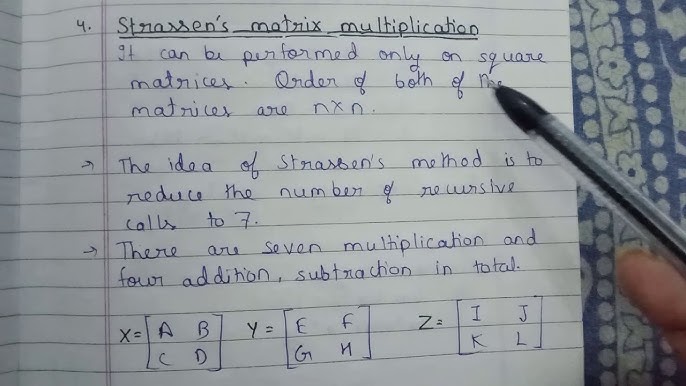 4. Strassen's matrix multiplication
It can be performed only on square
matrices. Order of both of the
matrices are n×n.
→ The idea of Strassen's method is to
reduce the number of recursive
calls to 7.
→ There are seven multiplication and
four addition, subtraction in total.
X = [A B Y = [E F Z = [I J
C D] G H] K L]